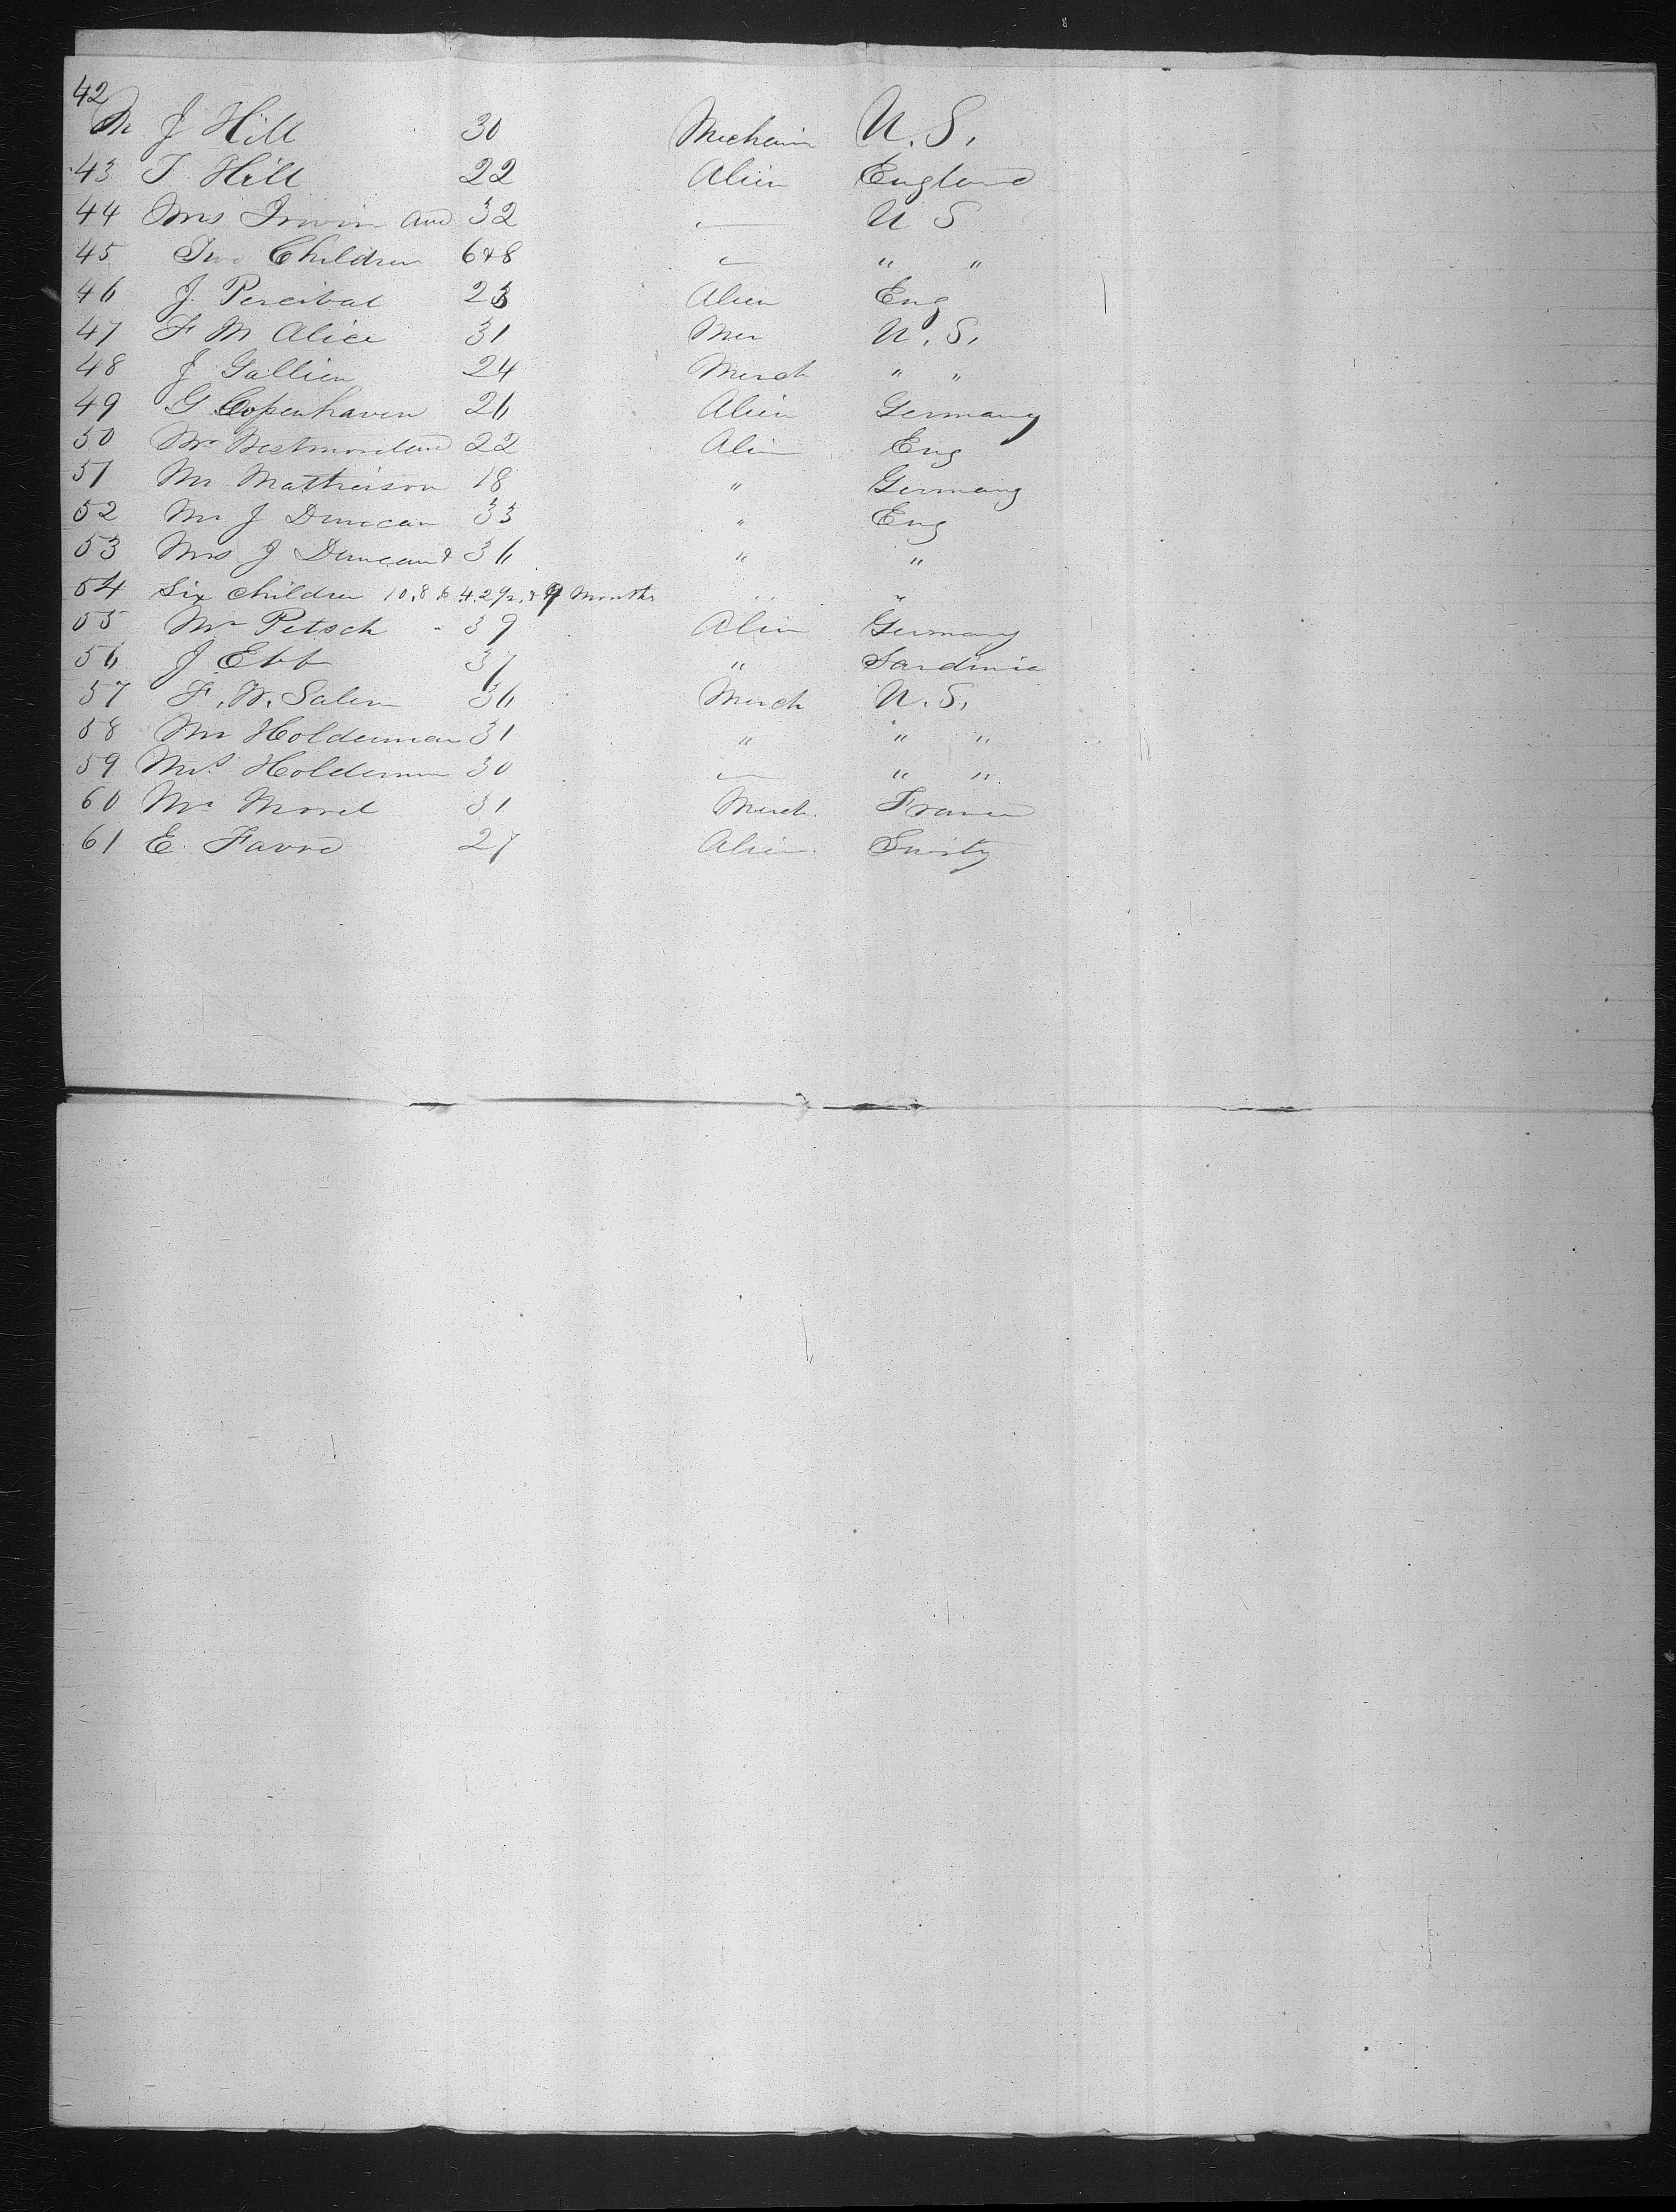 42
Mr J Hill 30 Mechanic U.S.
43 T Hill 22 Alien England
44 Mrs Irwin and 32 — U S
45 Two Children 6 & 8 — " "
46 J. Percibal 23 Alien Eng
47 F M Alice 31 Mer U.S.
48 J Gallien 24 Merch " "
49 G Copenhaven 26 Alien Germany
50 Mr Westmorland 22 Alien Eng
51 Mr Mathieson 18 " Germany
52 Mr J Duncan 33 " Eng
53 Mrs J Duncan & 36 " "
54 Six children 10, 8, 6 4. 2 1/2, & 9 Months " "
55 Mr Petsch 39 Alien Germany
56 J Ebb 37 " Sardinia
57 F. W. Salem 36 Merch U.S.
58 Mr Holderman 31 " " "
59 Mrs Holderman 30 — " "
60 Mr Morel 31 Merch. France
61 E. Favre 27 Alien